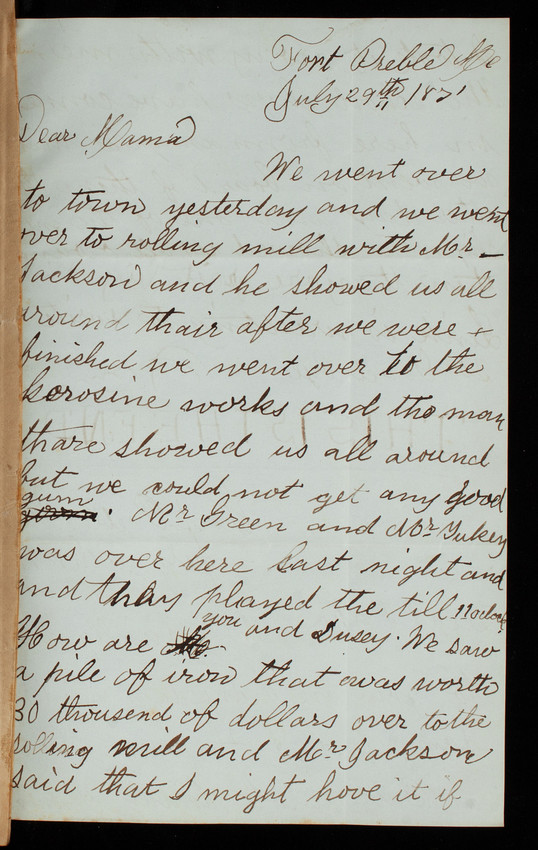 Fort Preble Me
July 29th 1871
Dear Mama
We went over
to town yesterday and we went
over to rolling mill with Mr
Jackson and he showed us all
around thair after we were +
finished we went over to the
kerosine works and the man
thare showed us all around
but we could not get any good
gum
. Mr Green and Mr Tukey
was over here last night and
and thay played the till 11 oclock
How are you and Susey. We saw
a pile of iron that was worth
30 thousend of dollars over to the
rolling mill and Mr Jackson
said that I might hove it if